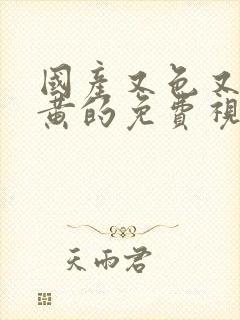 國產又色又
黃的免費視
天雨君